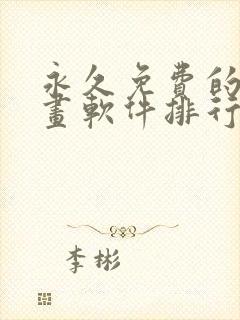 永久免費的
畫軟件排行
李彬